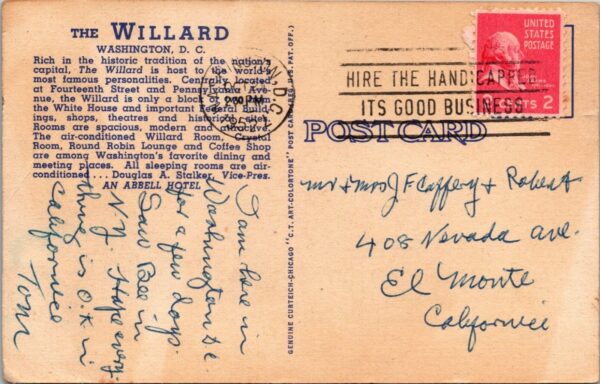 THE WILLARD
WASHINGTON, D. C.
Rich in the historic tradition of the nation's
capital, The Willard is host to the world's
most famous personalities. Centrally located
at Fourteenth Street and Pennsylvania Ave-
nue, the Willard is only a block or so from
the White House and important Federal Build-
ings, shops, theatres and historical sites.
Rooms are spacious, modern and attractive.
The air-conditioned Willard Room, Crystal
Room, Round Robin Lounge and Coffee Shop
are among Washington's favorite dining and
meeting places. All sleeping rooms are air-
conditioned . . . Douglas A. Stalker, Vice-Pres.
AN ABBELL HOTEL
I am here in
Washington D.C.
for a few days.
Saw Bee in
N.Y. Hope every-
thing is O.K. in
California
Tom
GENUINE CURTEICH-CHICAGO "C. T. ART-COLORTONE" POST CARD (REG. U.S. PAT. OFF.)
D.C.
PM
HIRE THE HANDICAPPED
ITS GOOD BUSINESS
UNITED
STATES
POSTAGE
CENTS 2
POST CARD
Mr & Mrs J F Caffery & Robert
408 Nevada Ave.
El Monte
California